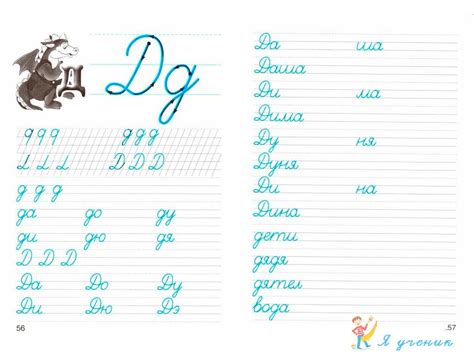 Д
Дд
д д д д д д
Д Д Д Д Д Д
д д д
да до ду
ди дю дя
Д Д Д
Да До Ду
Ди Дю Дэ
56
Да ша
Даша
Ди ма
Дима
Ду ня
Дуня
Ди на
Дина
дети
дядя
дятел
вода
57
Я ученик